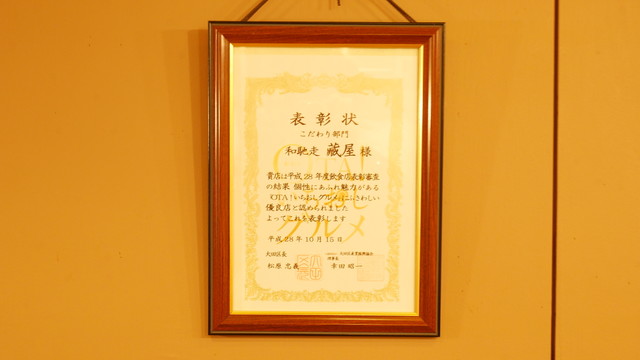 表彰状
こだわり部門
和馳走 蔵屋 様
貴店は平成28年度飲食店表彰審査
の結果 個性にあふれ魅力がある
「OTA!いちおしグルメ」にふさわしい
優良店と認められました
よってこれを表彰します
平成28年10月15日
大田区長
松原忠義
理事長
幸田昭一
グルメ